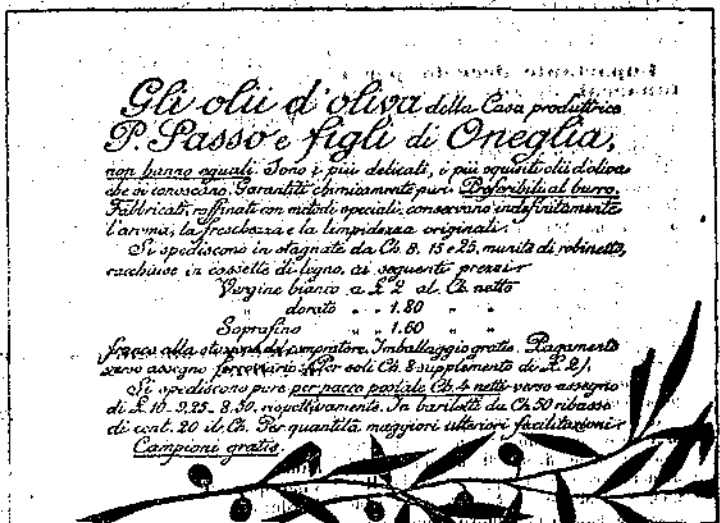 Gli olii d'oliva della Casa produttrice
P. Sasso e figli di Oneglia,
non hanno eguali. Sono i più delicati, i più squisiti olii d'oliva
che si conoscano. Garantiti chimicamente puri. Preferibili al burro.
Fabbricati, raffinati con metodi speciali, conservano indefinitamente
l'aroma, la freschezza e la limpidezza originali.
Si spediscono in stagnate da Ch. 8, 15 e 25, munite di robinetto,
racchiuse in cassette di legno, ai seguenti prezzi:
Vergine bianco a £ 2 al Ch. netto
" dorato " " 1.80 " "
Soprafino " " 1.60 " "
franco alla stazione del compratore. Imballaggio gratis. Pagamento
verso assegno ferroviario. (Per soli Ch. 8 supplemento di £. 2).
Si spediscono pure per pacco postale Ch. 4 netti verso assegno
di £. 10 - 9.25 - 8.50, rispettivamente. In barilotti da Ch. 50 ribasso
di cent. 20 il Ch. Per quantità maggiori ulteriori facilitazioni.
Campioni gratis.